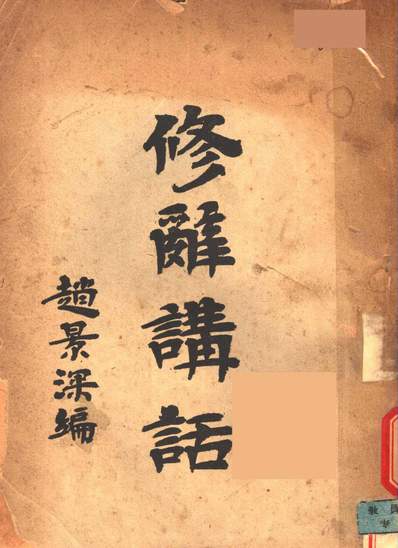 修辭講話
趙景深編